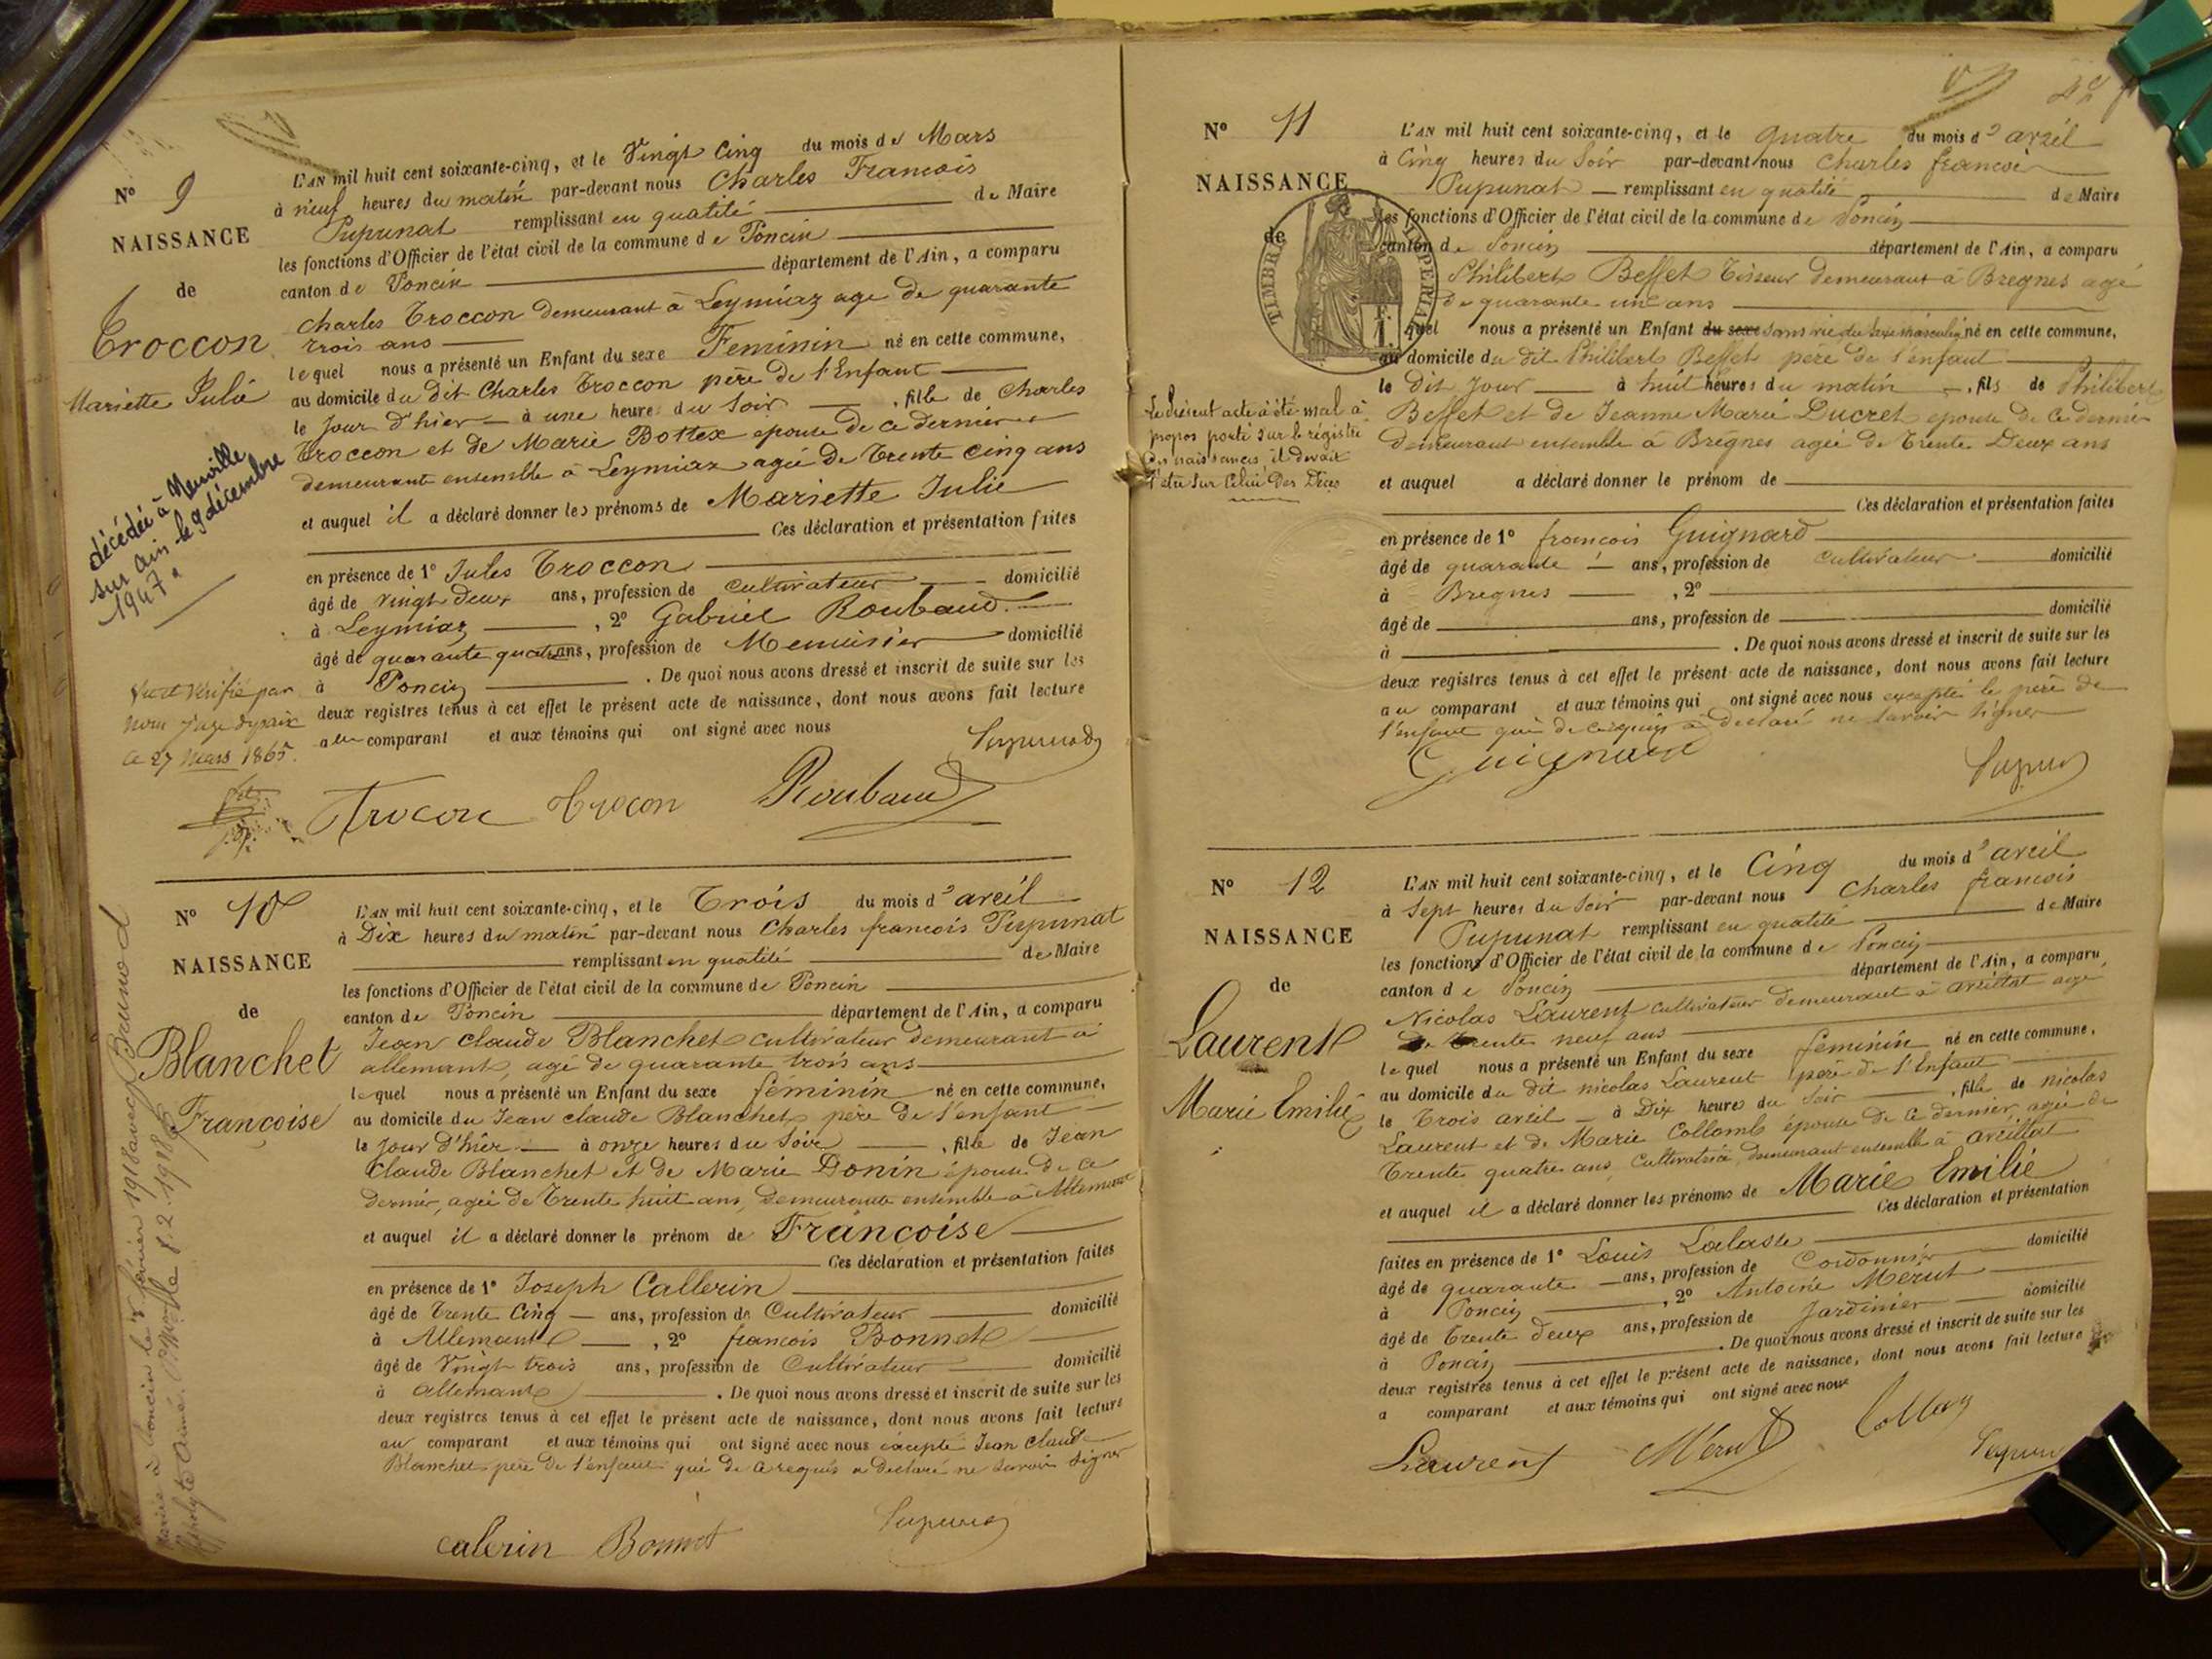 N° 9
NAISSANCE
de
Troccon
Mariette Julie
décédée à Neuville
sur Ain le 9 décembre
1947.
Vu et vérifié par
nous juge de paix
ce 27 Mars 1865.
L'AN mil huit cent soixante-cinq, et le Vingt Cinq du mois de Mars
à neuf heures du matin par-devant nous Charles Francois
Pupunat remplissant en qualité de Maire
les fonctions d'Officier de l'état civil de la commune de Poncin
canton de Poncin département de l'Ain, a comparu
Charles Troccon demeurant à Leymiaz age de quarante
trois ans
lequel nous a présenté un Enfant du sexe Feminin né en cette commune,
au domicile du dit Charles Troccon père de l'Enfant
le Jour d'hier à une heure du Soir, fille de Charles
Troccon et de Marie Bottex epouse de ce dernier
demeurant ensemble à Leymiaz agée de Trente Cinq ans
et auquel il a déclaré donner les prénoms de Mariette Julie
Ces déclaration et présentation faites
en présence de 1° Jules Troccon
âgé de vingt deux ans, profession de cultivateur domicilié
à Leymiaz, 2° Gabriel Roubaud
âgé de quarante quatre ans, profession de Menuisier domicilié
à Poncin. De quoi nous avons dressé et inscrit de suite sur les
deux registres tenus à cet effet le présent acte de naissance, dont nous avons fait lecture
au comparant et aux témoins qui ont signé avec nous
Pupunat
Trocon Trocon Roubaud
N° 10
NAISSANCE
de
Blanchet
Françoise
Mariée à Poncin le 8 février 1918 avec Brunod
Hippolyte Aimé
L'AN mil huit cent soixante-cinq, et le Trois du mois d'avril
à Dix heures du matin par-devant nous Charles francois Pupunat
remplissant en qualité de Maire
les fonctions d'Officier de l'état civil de la commune de Poncin
canton de Poncin département de l'Ain, a comparu
Jean claude Blanchet cultivateur demeurant à
allemant, agé de quarante trois ans
lequel nous a présenté un Enfant du sexe féminin né en cette commune,
au domicile du Jean claude Blanchet père de l'enfant
le Jour d'hier à onze heures du Soir, fille de Jean
Claude Blanchet et de Marie Donin épouse de ce
dernier, agée de Trente huit ans, demeurants ensemble à Allemant
et auquel il a déclaré donner le prénom de Françoise
Ces déclaration et présentation faites
en présence de 1° Joseph Callerin
âgé de Trente Cinq ans, profession de Cultivateur domicilié
à Allemant, 2° francois Bonnet
âgé de Vingt trois ans, profession de Cultivateur domicilié
à allemant. De quoi nous avons dressé et inscrit de suite sur les
deux registres tenus à cet effet le présent acte de naissance, dont nous avons fait lecture
au comparant et aux témoins qui ont signé avec nous excepté Jean Claude
Blanchet père de l'enfant qui de ce requis a declaré ne savoir signer
Pupunat
calerin Bonnet
N° 11
NAISSANCE
de
TIMBRE IMPERIAL
Le présent acte a été mal à
propos porté sur le régistre
des naissances, il devait
l'etre sur celui Des Décès
L'AN mil huit cent soixante-cinq, et le quatre du mois d'avril
à Cinq heures du Soir par-devant nous Charles francois
Pupunat remplissant en qualité de Maire
les fonctions d'Officier de l'état civil de la commune de Poncin
canton de Poncin département de l'Ain, a comparu
Philibert Beffet Tisseur demeurant à Bregnes agé
de quarante un ans
lequel nous a présenté un Enfant du sexe sans vie du sexe masculin né en cette commune,
au domicile du dit Philibert Beffet père de l'enfant
le dit Jour à huit heures du matin, fils de Philibert
Beffet et de Jeanne Marie Ducret epouse de ce dernier
demeurant ensemble à Bregnes agée de Trente Deux ans
et auquel a déclaré donner le prénom de
Ces déclaration et présentation faites
en présence de 1° francois Guignard
âgé de quarante ans, profession de Cultivateur domicilié
à Bregnes, 2°
âgé de ans, profession de domicilié
à . De quoi nous avons dressé et inscrit de suite sur les
deux registres tenus à cet effet le présent acte de naissance, dont nous avons fait lecture
au comparant et aux témoins qui ont signé avec nous excepté le père de
l'enfant qui de ce requis à declaré ne savoir signer
Guignard
N° 12
NAISSANCE
de
Laurent
Marie Emilie
L'AN mil huit cent soixante-cinq, et le Cinq du mois d'avril
à Sept heures du Soir par-devant nous Charles francois
Pupunat remplissant en qualité de Maire
les fonctions d'Officier de l'état civil de la commune de Poncin
canton de Poncin département de l'Ain, a comparu
Nicolas Laurent cultivateur demeurant à avrillat agé
de trente neuf ans
lequel nous a présenté un Enfant du sexe féminin né en cette commune,
au domicile du dit nicolas Laurent père de l'Enfant
le Trois avril à Dix heures du Soir, fille de nicolas
Laurent et de Marie Collomb épouse de ce dernier, agée de
Trente quatre ans, cultivatrice demeurant ensemble à avrillat
et auquel il a déclaré donner les prénoms de Marie Emilie
Ces déclaration et présentation
faites en présence de 1° Louis Lalaste
âgé de quarante ans, profession de Cordonnier domicilié
à Poncin, 2° Antoine Merut
âgé de Trente deux ans, profession de Jardinier domicilié
à Poncin. De quoi nous avons dressé et inscrit de suite sur les
deux registres tenus à cet effet le présent acte de naissance, dont nous avons fait lecture
a comparant et aux témoins qui ont signé avec nous
Laurent Mérut